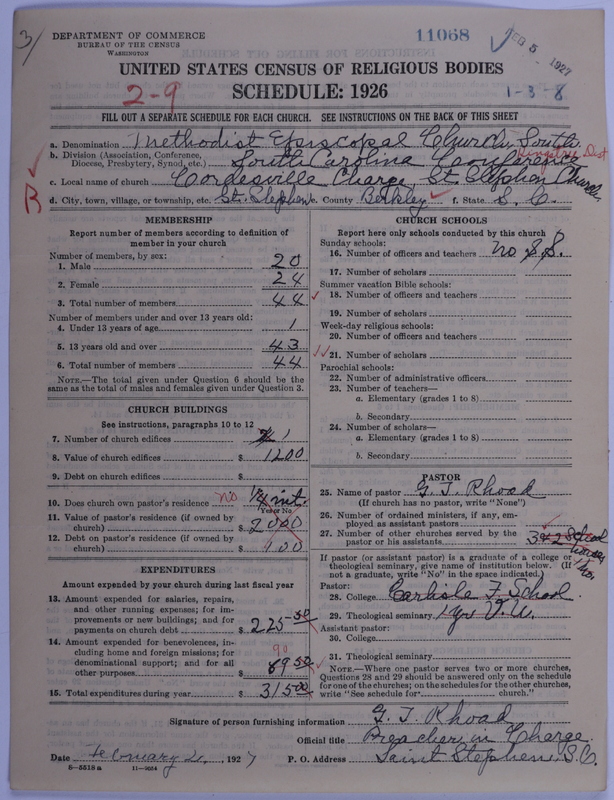 3/
DEPARTMENT OF COMMERCE
BUREAU OF THE CENSUS
WASHINGTON
11068
FEB 5 1927
UNITED STATES CENSUS OF RELIGIOUS BODIES
1-3-8
2-9
SCHEDULE: 1926
FILL OUT A SEPARATE SCHEDULE FOR EACH CHURCH. SEE INSTRUCTIONS ON THE BACK OF THIS SHEET
a. Denomination Methodist Episcopal Church, South
b. Division (Association, Conference, Diocese, Presbytery, Synod, etc.) South Carolina Conference Kingstree Dist
c. Local name of church Cordesville Charge St. Stephen Church
d. City, town, village, or township, etc. St. Stephen e. County Berkley f. State S. C.
MEMBERSHIP
Report number of members according to definition of
member in your church
Number of members, by sex:
1. Male 20
2. Female 24
3. Total number of members 44
Number of members under and over 13 years old:
4. Under 13 years of age 1
5. 13 years old and over 43
6. Total number of members 44
NOTE.—The total given under Question 6 should be the
same as the total of males and females given under Question 3.
CHURCH BUILDINGS
See instructions, paragraphs 10 to 12
7. Number of church edifices 1
8. Value of church edifices $ 1200
9. Debt on church edifices $
10. Does church own pastor's residence no 1/4 int.
Yes or No
11. Value of pastor's residence (if owned by
church) $ 2000
12. Debt on pastor's residence (if owned by
church) $ 100
EXPENDITURES
Amount expended by your church during last fiscal year
13. Amount expended for salaries, repairs,
and other running expenses; for im-
provements or new buildings; and for
payments on church debt $ 225 50
14. Amount expended for benevolences, in-
cluding home and foreign missions; for
denominational support; and for all
other purposes $ 89 50
90
15. Total expenditures during year $ 315 00
CHURCH SCHOOLS
Report here only schools conducted by this church
Sunday schools:
16. Number of officers and teachers no S. S.
17. Number of scholars
Summer vacation Bible schools:
18. Number of officers and teachers
19. Number of scholars
Week-day religious schools:
20. Number of officers and teachers
21. Number of scholars
Parochial schools:
22. Number of administrative officers
23. Number of teachers—
a. Elementary (grades 1 to 8)
b. Secondary
24. Number of scholars—
a. Elementary (grades 1 to 8)
b. Secondary
PASTOR
25. Name of pastor G. T. Rhoad
(If church has no pastor, write "None")
26. Number of ordained ministers, if any, em-
ployed as assistant pastors
27. Number of other churches served by the
pastor or his assistants 3
If pastor (or assistant pastor) is a graduate of a college or
theological seminary, give name of institution below. (If
not a graduate, write "No" in the space indicated.)
Pastor:
28. College Carlisle F. School.
29. Theological seminary 1 yr V. U.
Assistant pastor:
30. College
31. Theological seminary
NOTE.—Where one pastor serves two or more churches,
Questions 28 and 29 should be answered only on the schedule
for one of the churches; on the schedules for the other churches,
write "See schedule for church."
Signature of person furnishing information G. T. Rhoad
Official title Preacher in Charge.
Date February 2, 1927 P. O. Address Saint Stephen, S. C.
8—5518 a 11—9054